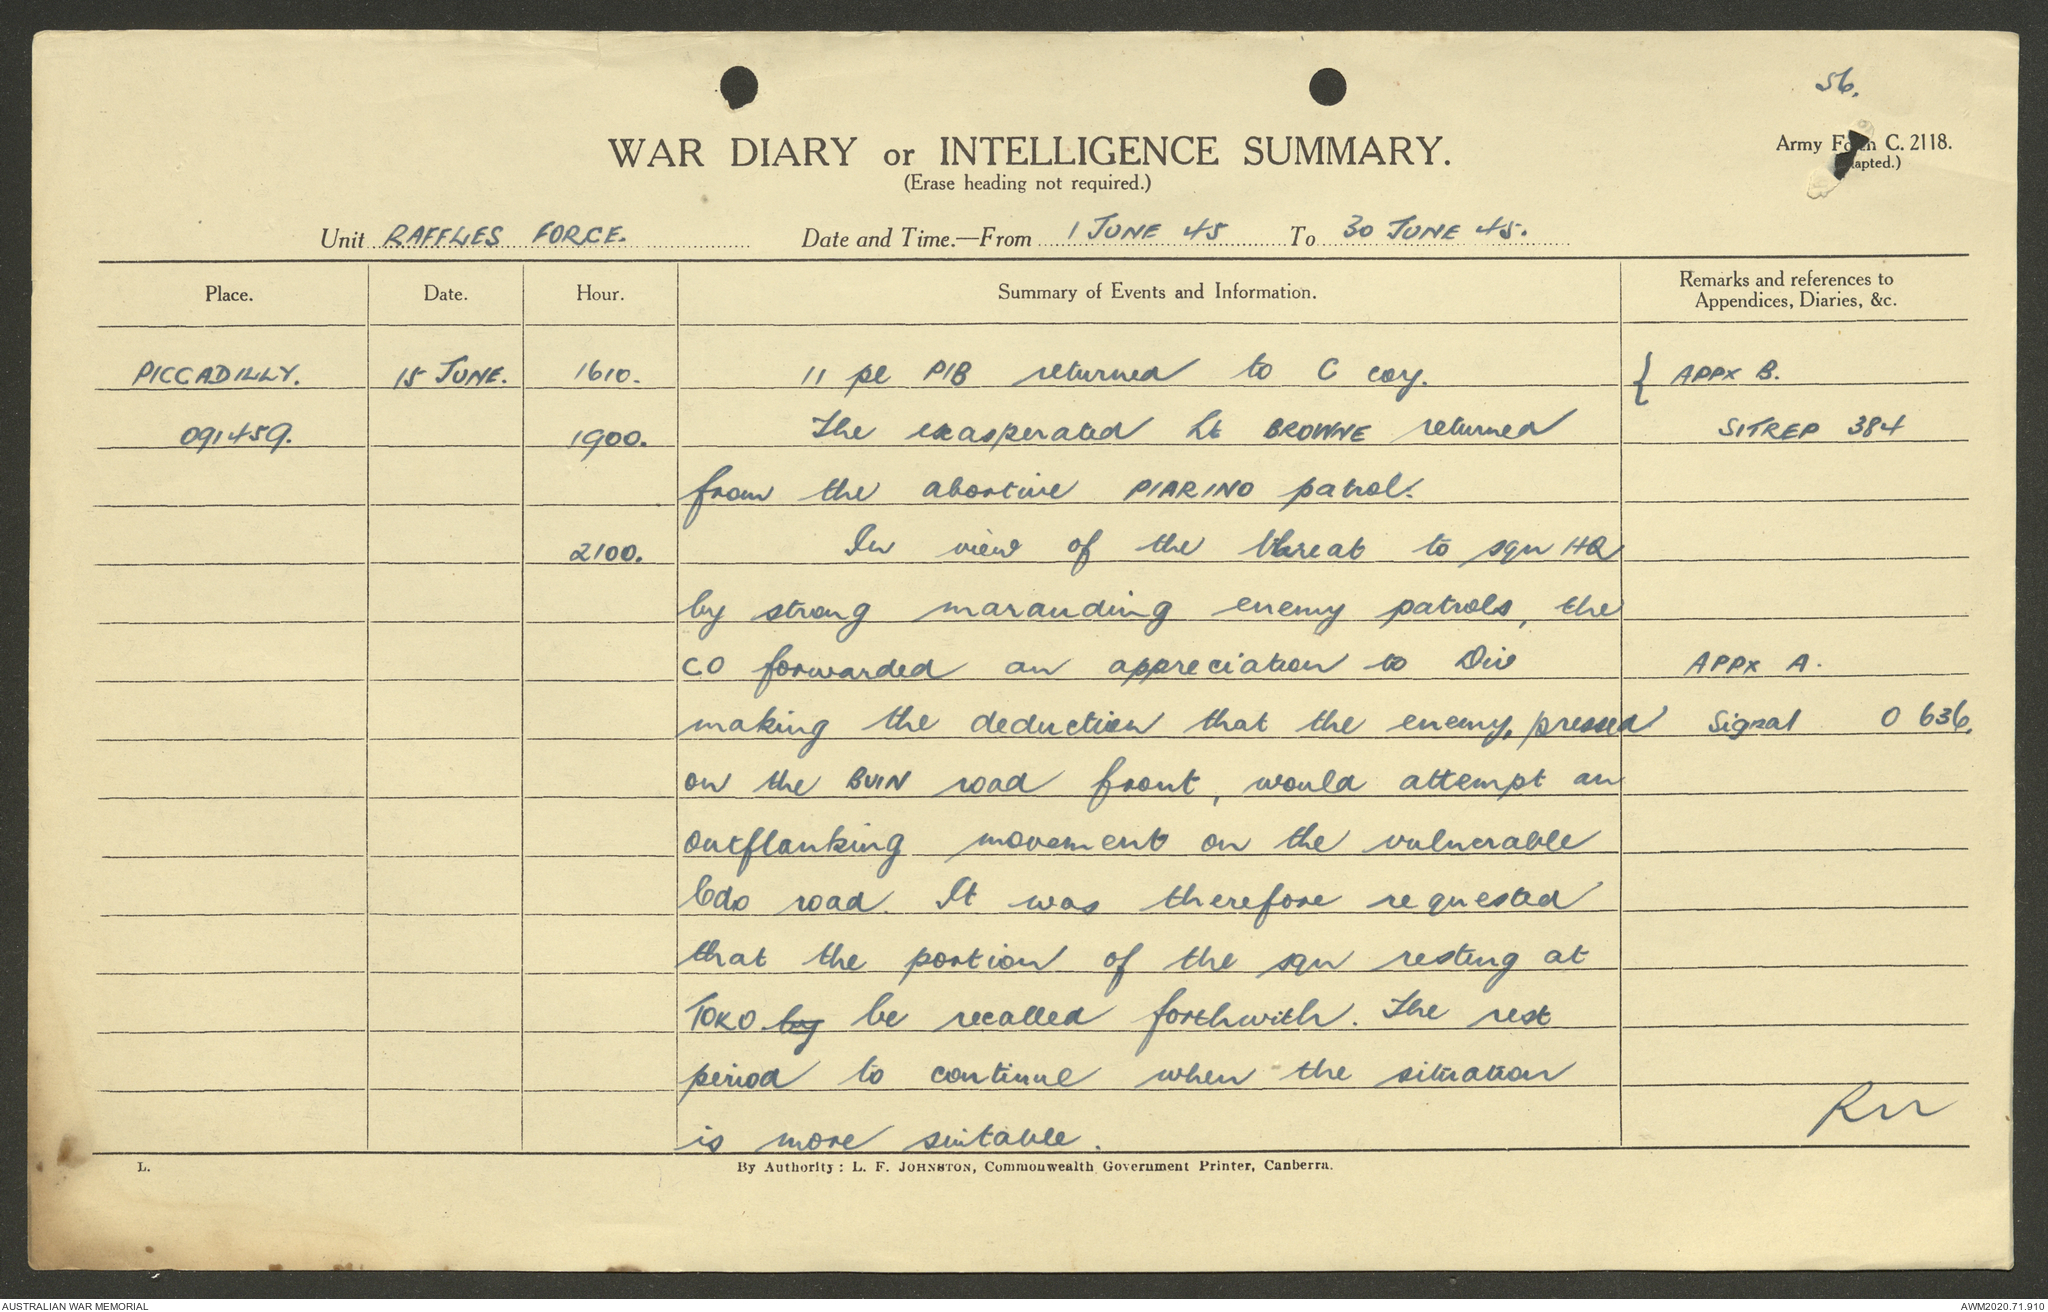 56.
WAR DIARY or INTELLIGENCE SUMMARY.
(Erase heading not required.)
Army Form C. 2118.
(Adapted.)
Unit RAFFLES FORCE. Date and Time.—From 1 JUNE 45 To 30 JUNE 45.
Place. Date. Hour. Summary of Events and Information. Remarks and references to
Appendices, Diaries, &c.
PICCADILLY. 15 JUNE. 1610. 11 pl PIB returned to C coy. { APPX B.
091459. 1900. The exasperated Lt BROWNE returned SITREP 384
from the abortive PIARINO patrol.
2100. In view of the threat to sqn HQ
by strong marauding enemy patrols, the
CO forwarded an appreciation to Div APPX A.
making the deduction that the enemy, pressed Signal O 636.
on the BUIN road front, would attempt an
outflanking movement on the vulnerable
Cdo road. It was therefore requested
that the portion of the sqn resting at
TOKO by be recalled forthwith. The rest
period to continue when the situation
is more suitable.
L. By Authority: L. F. JOHNSTON, Commonwealth Government Printer, Canberra.
AUSTRALIAN WAR MEMORIAL AWM2020.71.910